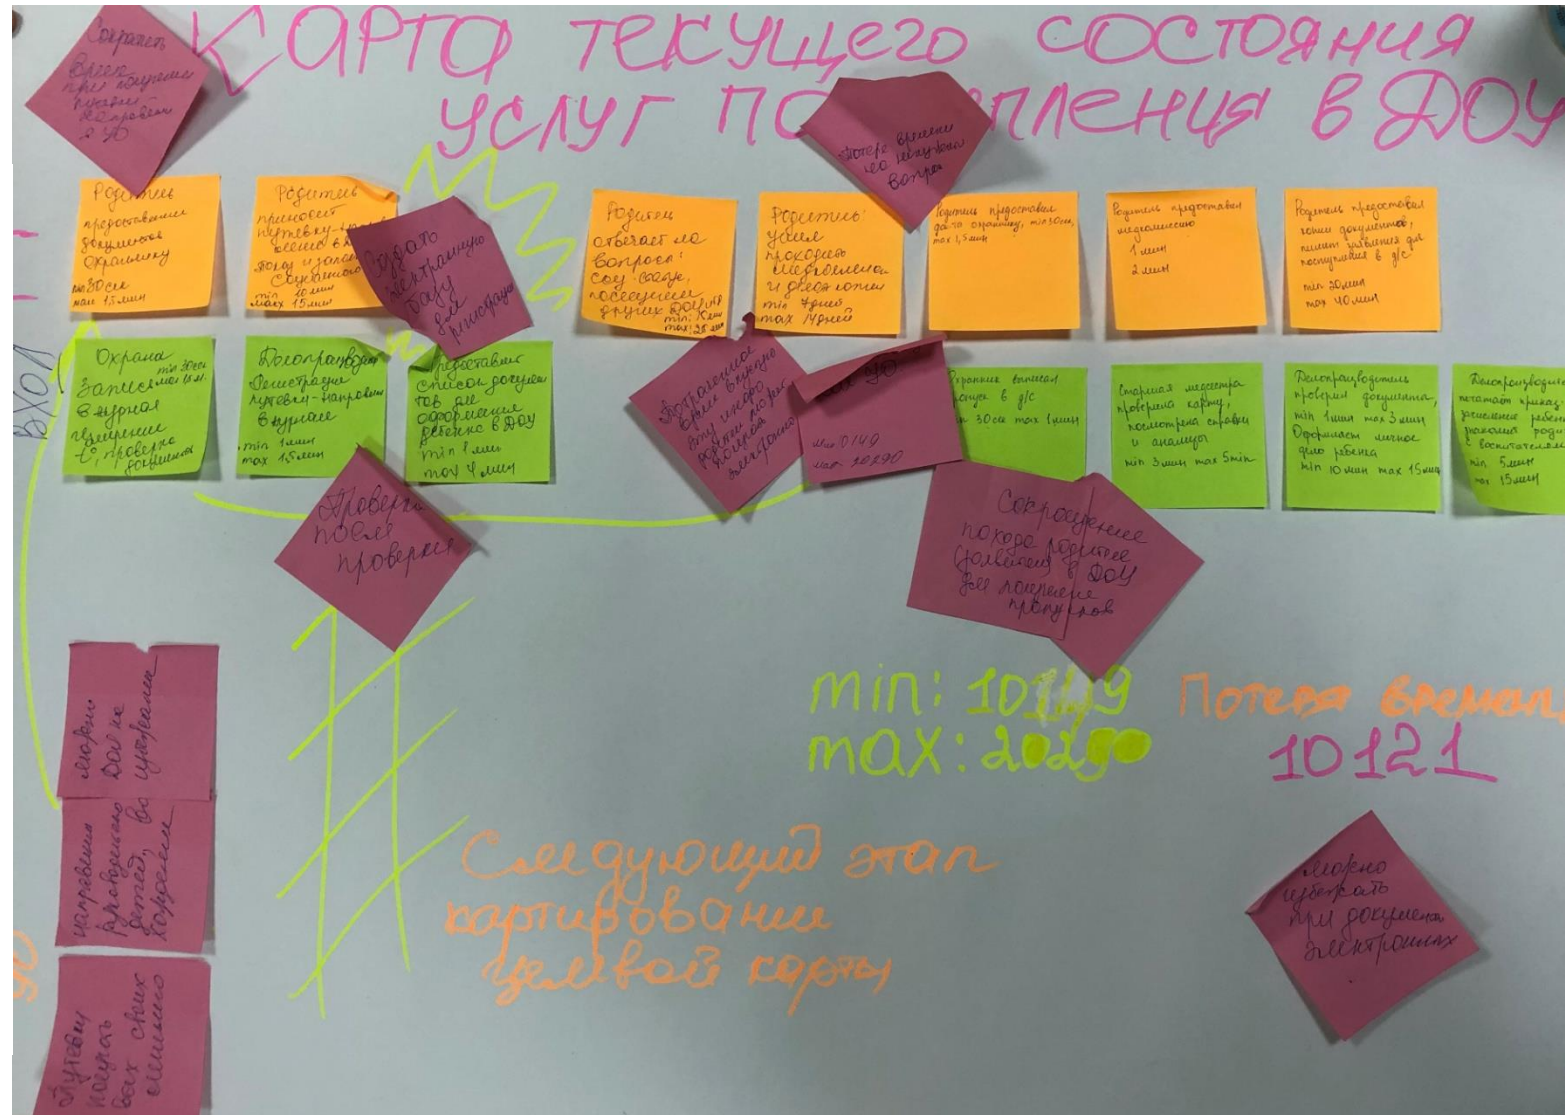 Карта текущего состояния
услуг по пления в ДОУ
Сократить
время
при
потеря времени
на ненужные
вопросы
Родитель
предоставление
документов
охраннику
min 30сек
max 1.5 мин
Родитель
приносит
путевку-
min 10мин
max 15мин
Создать
электронную
базу
для
регистрации
Родитель
отвечает на
вопросы:
соц. статус,
посещением
других ДОУ
min: 15мин
max: 25 мин
Родитель
ушел
проходить
медкомиссию
и делать копии
min 7дней
max 14дней
Родитель предоставил
док-та охраннику, min 30сек,
max 1,5 мин
Родитель предоставил
медкомиссию
1 мин
2 мин
Родитель предоставил
копии документов,
пишет заявления для
поступления в д/с
min 20мин
max 40мин
ВХОД
Охрана
min 30сек
Запись max 1.5м.
в журнал
измерение
t°, проверка
документов
Делопроизвод
Регистрация
путевки-направлен
в журнале
min 1 мин
max 1.5мин
Предоставил
список докумен
тов для
оформления
ребенка в ДОУ
min 1 мин
max 4 мин
Потраченное
время впустую
эту инфо
можно
электронно
УО
min 0149
max. 20290
Охранник выписал
пропуск в д/с
min 30сек max 1мин
Старшая медсестра
проверила карту,
посмотрела справки
и анализы
min 3мин max 5min
Делопроизводитель
проверил документы,
min 1мин max 3мин
Оформляет личное
дело ребенка
min 10мин max 15мин
Делопроизводитель
печатает приказ,
зачисления ребенка
знакомит роди
с воспитателем
min 5мин
max 15мин
Проверка
после
проверки
Сокращение
похода родителя
(заявителя) в ДОУ
для получения
пропусков
можно
направления
детей, во
Путевки
получать
всех своих
min: 10149
max: 20290
Потеря времени
10121
Следующий этап
картировании
целевой карты
можно
избежать
при документах
электронных
УО